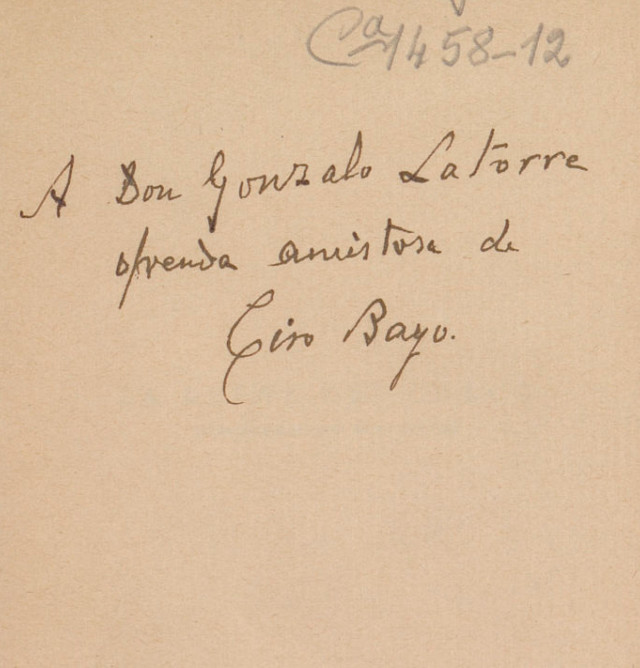 Cª 1458-12
A Don Gonzalo Latorre
ofrenda amistosa de
Ciro Bayo.